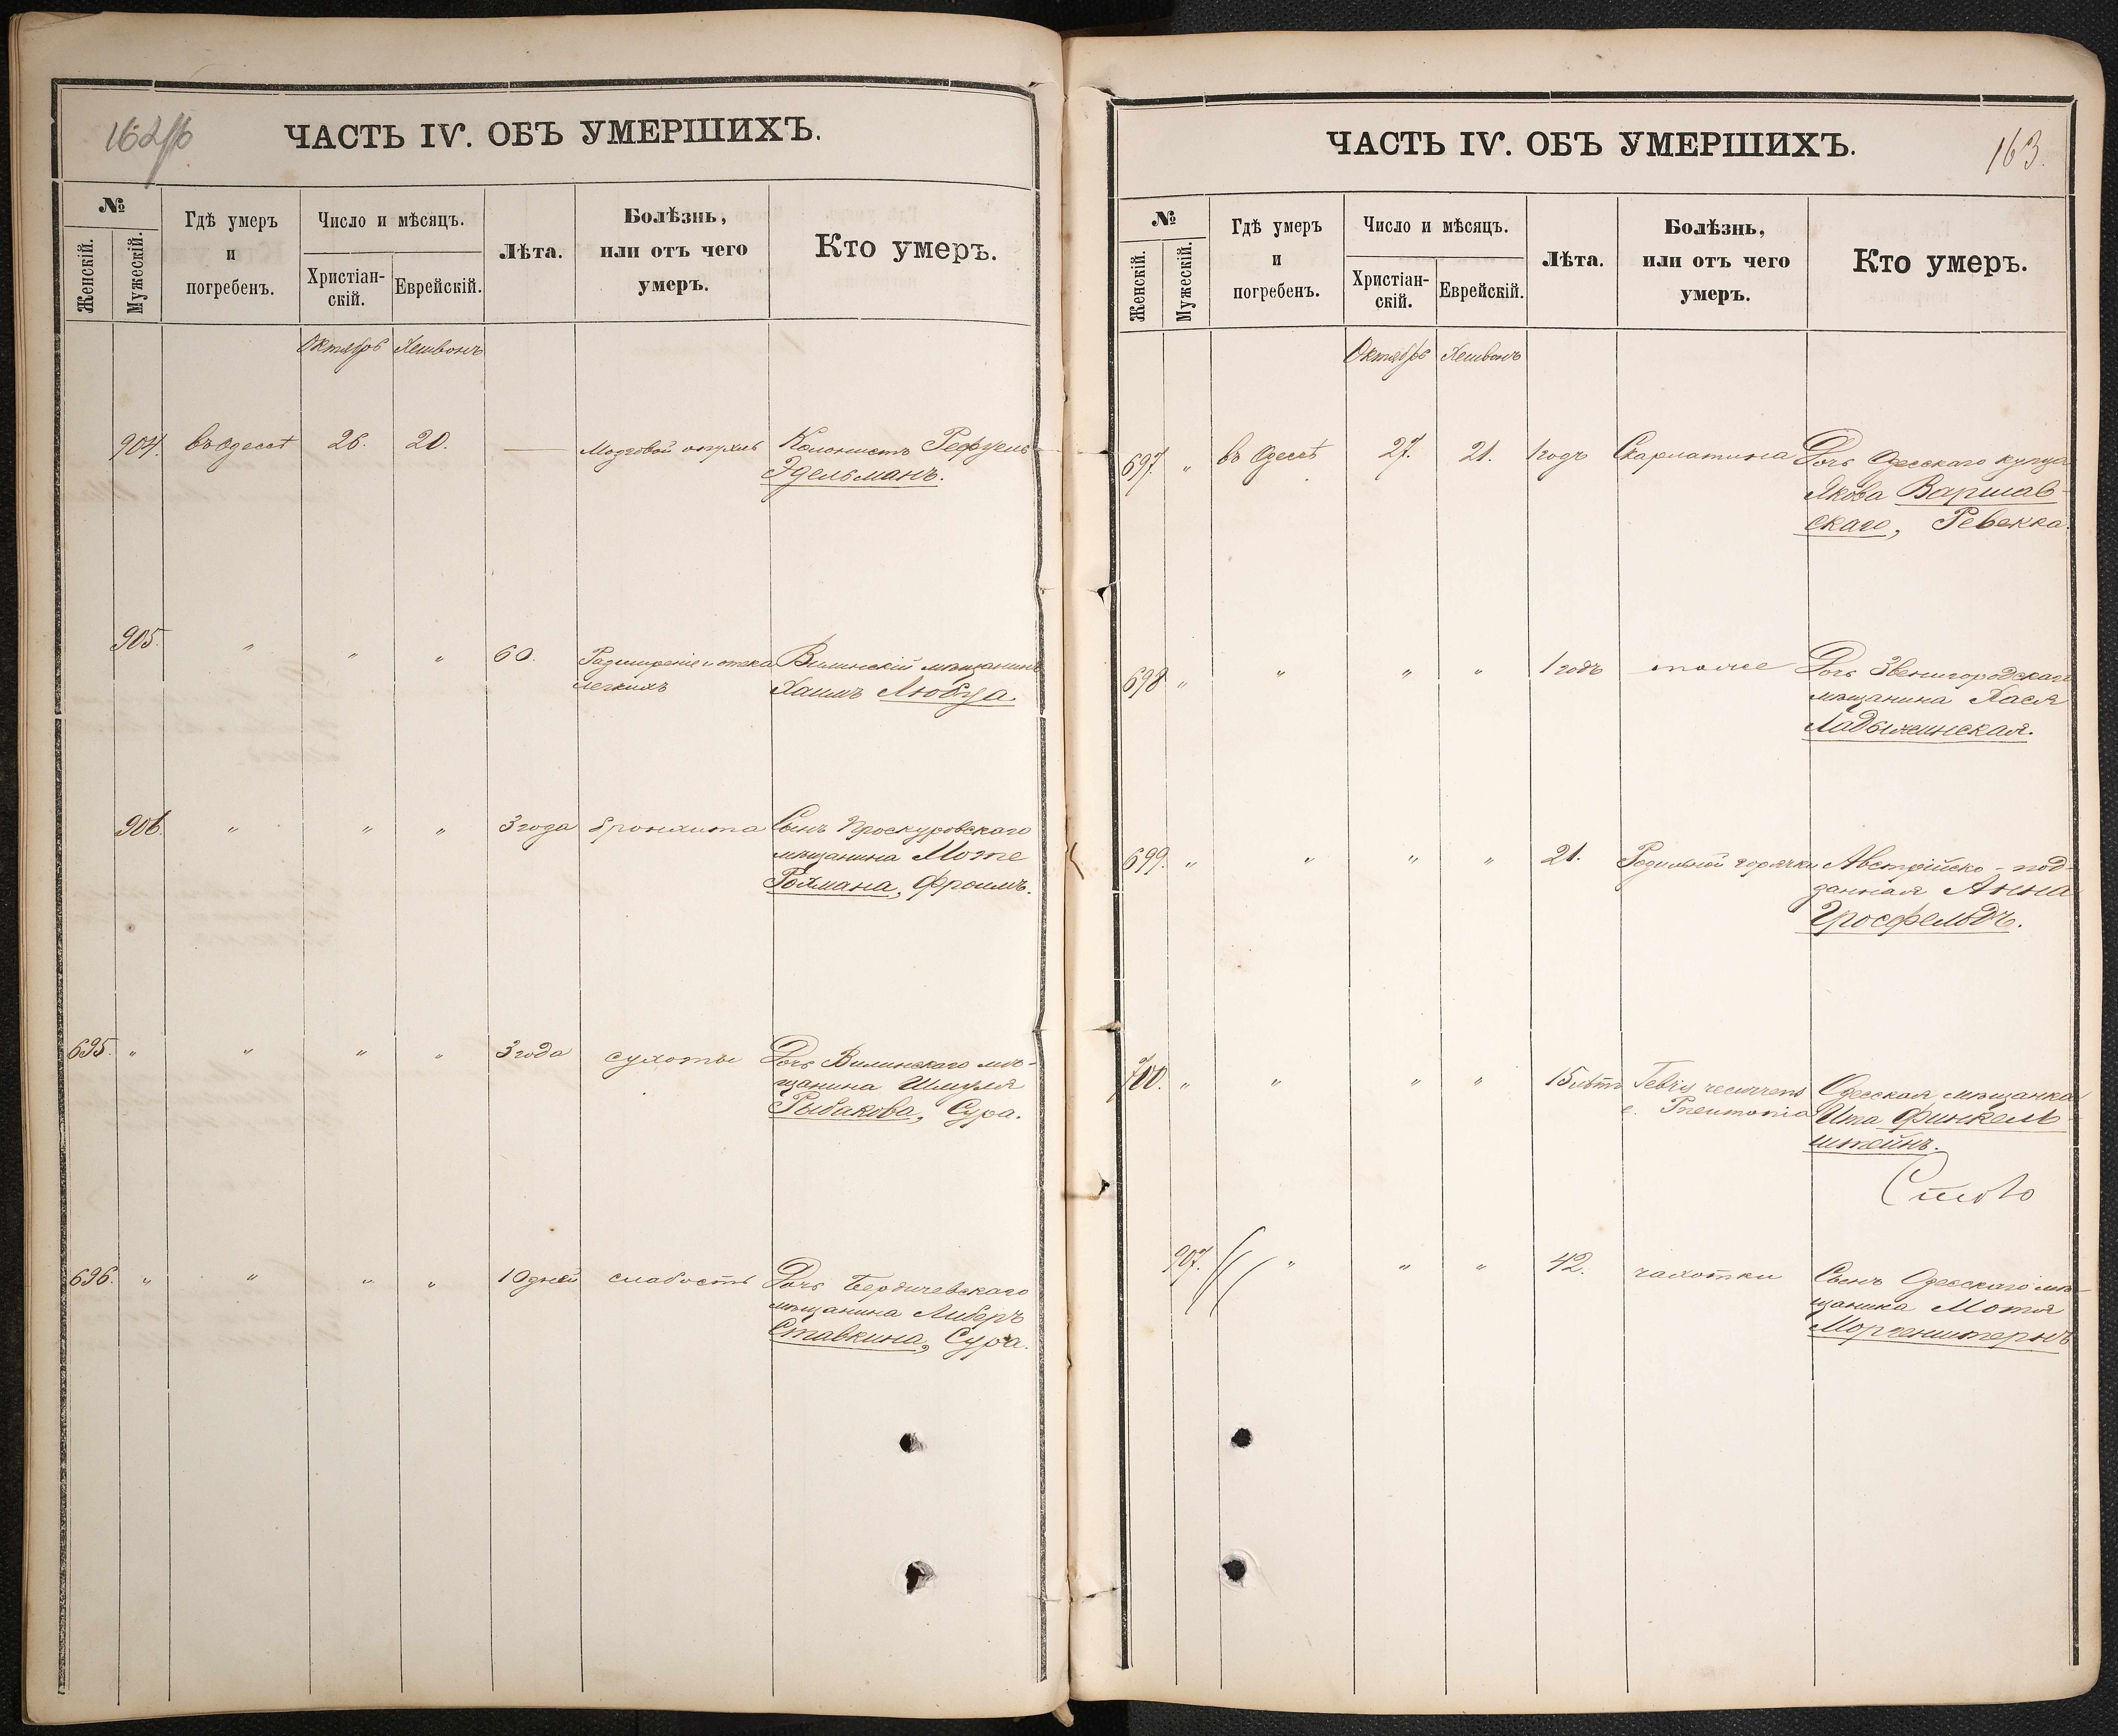 162об
ЧАСТЬ IV. ОБЪ УМЕРШИХЪ.
№
Женскій.
Мужескій.
Гдѣ умеръ
и
погребенъ.
Число и мѣсяцъ.
Христіан-
скій.
Еврейскій.
Лѣта.
Болѣзнь,
или отъ чего
умеръ.
Кто умеръ.
Октябрь Хешвонъ
904. въ Одессѣ 26. 20. — Мозговой опухль Колонистъ Рефуель
Эдельманъ.
905. " " " 60. Расширеніе и отека Виленскій мѣщанинъ
легкихъ Хаимъ Любца.
906. " " " 3 года бронхита Сынъ Проскуровскаго
мѣщанина Моте
Рохмана, Фроимъ.
695. " " " " 3 года сухоты Дочь Виленскаго мѣ-
щанина Шмуля
Рыбакова, Сура.
696. " " " " 10 дней слабость Дочь Бердичевскаго
мѣщанина Либеръ
Ставкина, Сура.
ЧАСТЬ IV. ОБЪ УМЕРШИХЪ.
163.
№
Женскій.
Мужескій.
Гдѣ умеръ
и
погребенъ.
Число и мѣсяцъ.
Христіан-
скій.
Еврейскій.
Лѣта.
Болѣзнь,
или отъ чего
умеръ.
Кто умеръ.
Октябрь Хешвонъ
697. " въ Одессѣ 27. 21. 1 годъ Скарлатина Дочь Одесскаго купца
Якова Варшав-
скаго, Ревекка.
698 " " " " 1 годъ тоже Дочь Звенигородскаго
мѣщанина Хася
Ладыжинская.
699. " " " " 21. Родильной горячки Австрійско-под-
данная Анна
Гросфельдъ.
700. " " " " 15 лѣтъ Febris recurrens Одесская мѣщанка
c. Pneumonia Ита Финкель-
штейнъ.
907. " " " 42. чахотки Сынъ Одесскаго мѣ-
щанина Мотя
Моргенштернъ